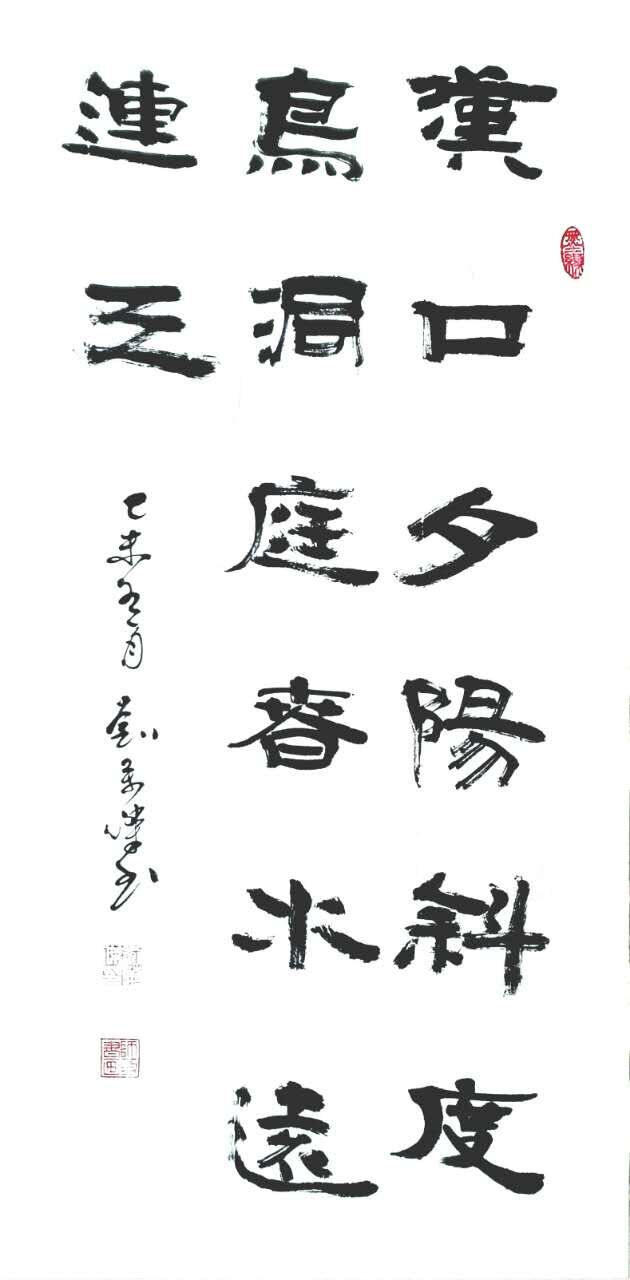 漢口夕陽斜度
鳥洞庭春水遠
連天
乙未五月